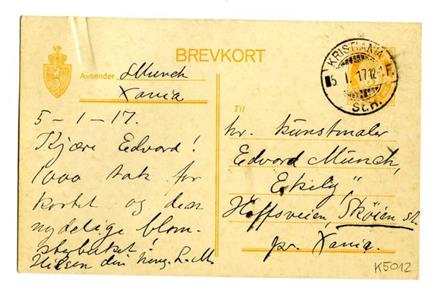 BREVKORT
Avsender Munch
Xania
5-1-17.
Kjære Edvard!
1000 tak for
kortet og den
nydelige blom-
sterbuket!
Hilsen din heng. L.M.
KRISTIANIA
5 I. 17 12-1 F.
St.H.
Til
hr. kunstmaler
Edvard Munch,
"Ekely",
Hoffsveien, Skøien st.
pr. Xania.
K5012